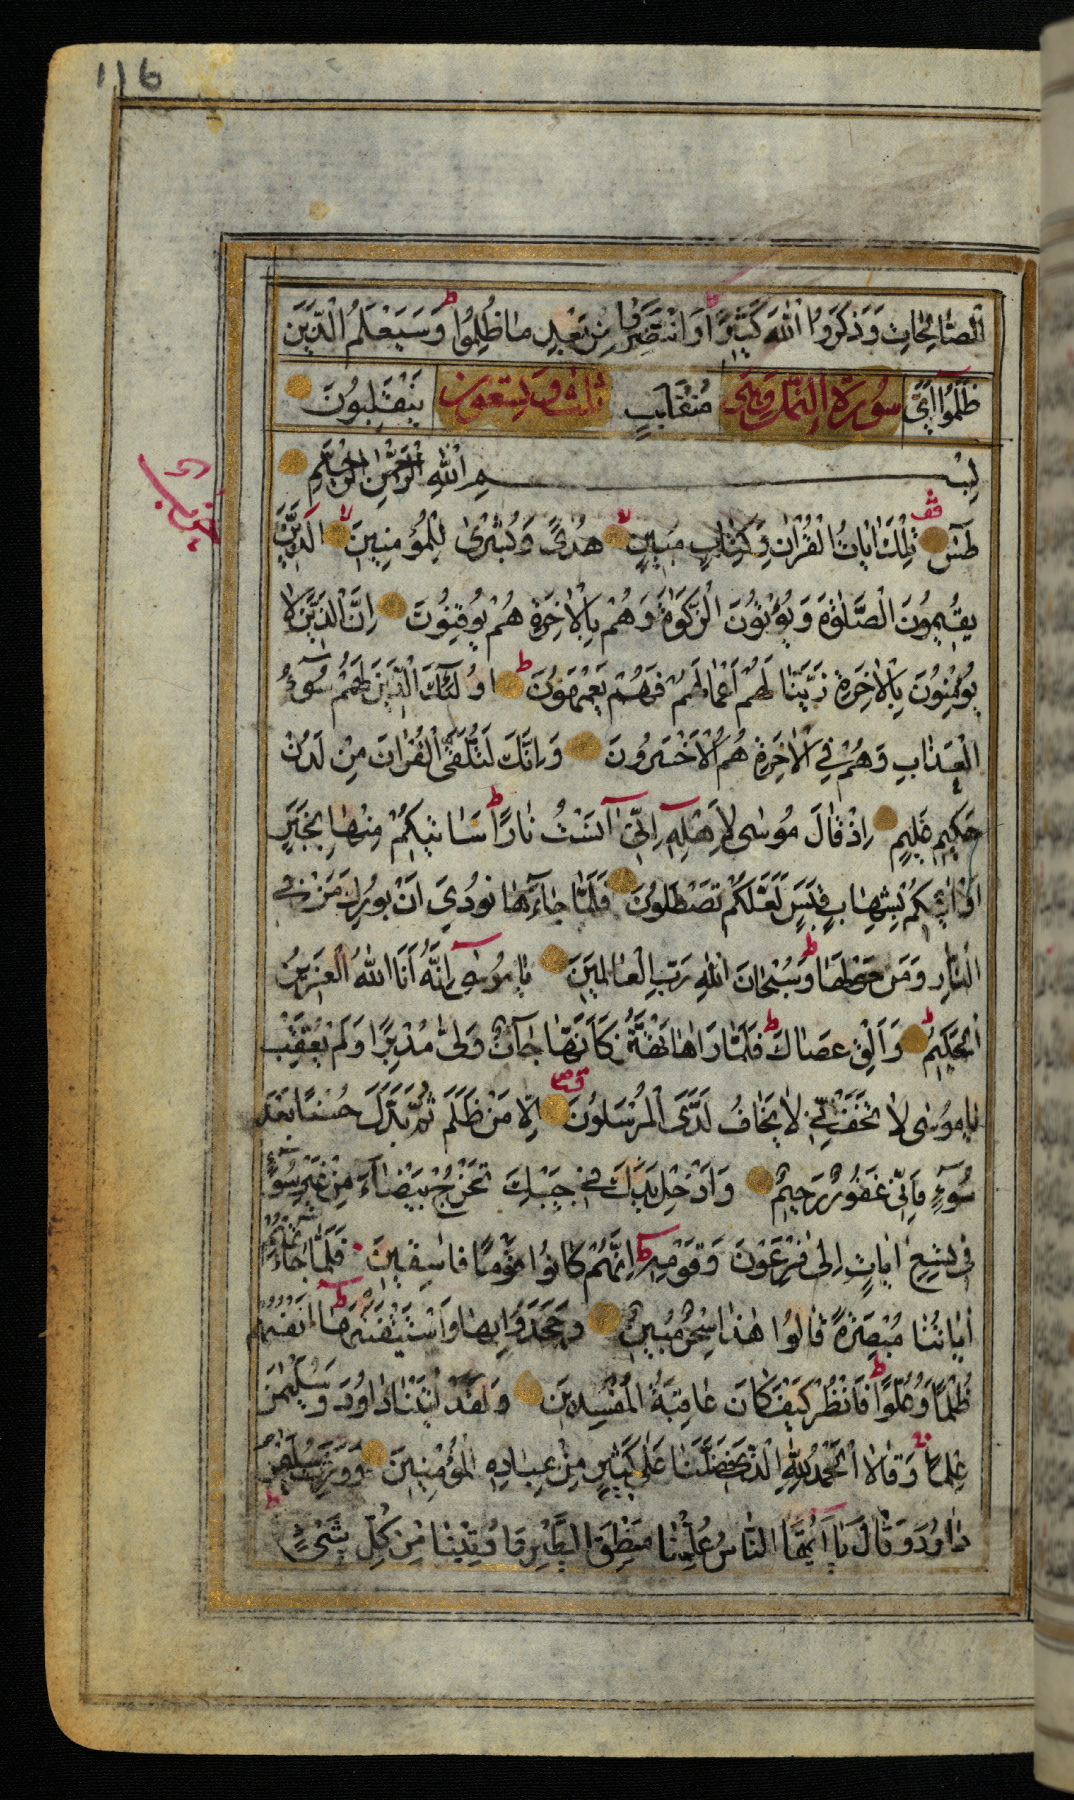 116
الصَّالِحَاتِ وَذَكَرُوا اللهَ كَثِيرًا وَانْتَصَرُوا مِنْ بَعْدِ مَا ظُلِمُوا وَسَيَعْلَمُ الَّذِينَ
ظَلَمُوا أَيَّ سُورَةُ النَّمْلِ وَهِيَ مُنْقَلَبٍ ثلث وتسعون يَنْقَلِبُونَ
بِسْمِ اللهِ الرَّحْمٰنِ الرَّحِيمِ
حزب
قف
طٰسٓ تِلْكَ اٰيَاتُ الْقُرْاٰنِ وَكِتَابٍ مُبِينٍ لا هُدًى وَبُشْرٰى لِلْمُؤْمِنِينَ لا الَّذِينَ
يُقِيمُونَ الصَّلٰوةَ وَيُؤْتُونَ الزَّكٰوةَ وَهُمْ بِالْاٰخِرَةِ هُمْ يُوقِنُونَ اِنَّ الَّذِينَ لَا
يُؤْمِنُونَ بِالْاٰخِرَةِ زَيَّنَّا لَهُمْ اَعْمَالَهُمْ فَهُمْ يَعْمَهُونَ ط اُولٰٓئِكَ الَّذِينَ لَهُمْ سُوٓءُ
الْعَذَابِ وَهُمْ فِي الْاٰخِرَةِ هُمُ الْاَخْسَرُونَ وَاِنَّكَ لَتُلَقَّى الْقُرْاٰنَ مِنْ لَدُنْ
حَكِيمٍ عَلِيمٍ اِذْ قَالَ مُوسٰى لِاَهْلِهٓ اِنِّىٓ اٰنَسْتُ نَارًا ط سَاٰتِيكُمْ مِنْهَا بِخَبَرٍ
اَوْ اٰتِيكُمْ بِشِهَابٍ قَبَسٍ لَعَلَّكُمْ تَصْطَلُونَ فَلَمَّا جَآءَهَا نُودِيَ اَنْ بُورِكَ مَنْ فِي
النَّارِ وَمَنْ حَوْلَهَا ط وَسُبْحَانَ اللهِ رَبِّ الْعَالَمِينَ يَا مُوسٰى اِنَّهُ اَنَا اللهُ الْعَزِيزُ
الْحَكِيمُ ط وَاَلْقِ عَصَاكَ ط فَلَمَّا رَاٰهَا تَهْتَزُّ كَاَنَّهَا جَآنٌّ وَلّٰى مُدْبِرًا وَلَمْ يُعَقِّبْ
يَا مُوسٰى لَا تَخَفْ اِنِّي لَا يَخَافُ لَدَيَّ الْمُرْسَلُونَ اِلَّا مَنْ ظَلَمَ ثُمَّ بَدَّلَ حُسْنًا بَعْدَ
سُوٓءٍ فَاِنِّي غَفُورٌ رَحِيمٌ وَاَدْخِلْ يَدَكَ فِي جَيْبِكَ تَخْرُجْ بَيْضَآءَ مِنْ غَيْرِ سُوٓءٍ
فِي تِسْعِ اٰيَاتٍ اِلٰى فِرْعَوْنَ وَقَوْمِهِ ط اِنَّهُمْ كَانُوا قَوْمًا فَاسِقِينَ فَلَمَّا جَآءَتْهُمْ
اٰيَاتُنَا مُبْصِرَةً قَالُوا هٰذَا سِحْرٌ مُبِينٌ وَجَحَدُوا بِهَا وَاسْتَيْقَنَتْهَآ اَنْفُسُهُمْ
ظُلْمًا وَعُلُوًّا ط فَانْظُرْ كَيْفَ كَانَ عَاقِبَةُ الْمُفْسِدِينَ وَلَقَدْ اٰتَيْنَا دَاوُدَ وَسُلَيْمٰنَ
عِلْمًا وَقَالَا الْحَمْدُ لِلّٰهِ الَّذِي فَضَّلَنَا عَلٰى كَثِيرٍ مِنْ عِبَادِهِ الْمُؤْمِنِينَ وَوَرِثَ سُلَيْمٰنُ
دَاوُدَ وَقَالَ يَآ اَيُّهَا النَّاسُ عُلِّمْنَا مَنْطِقَ الطَّيْرِ وَاُوتِينَا مِنْ كُلِّ شَيْءٍ ط